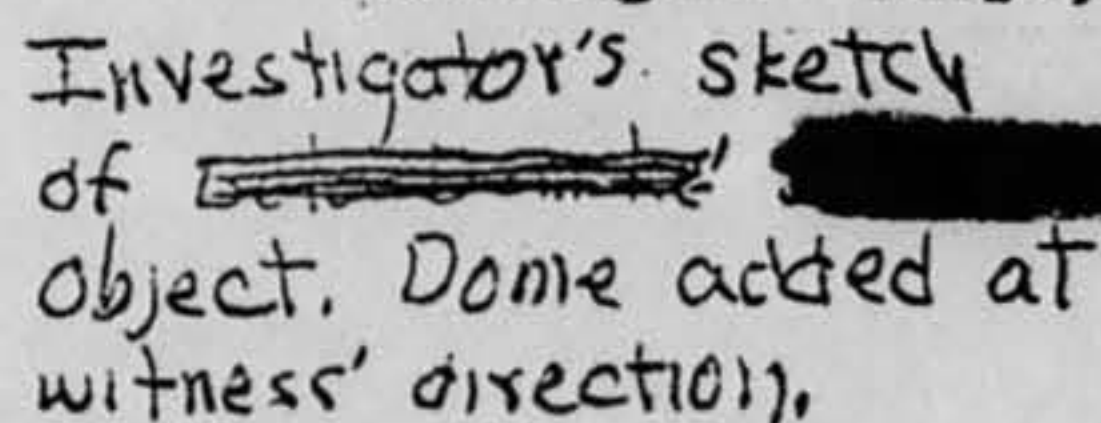 Investigator's sketch
of
object. Dome added at
witness' direction.